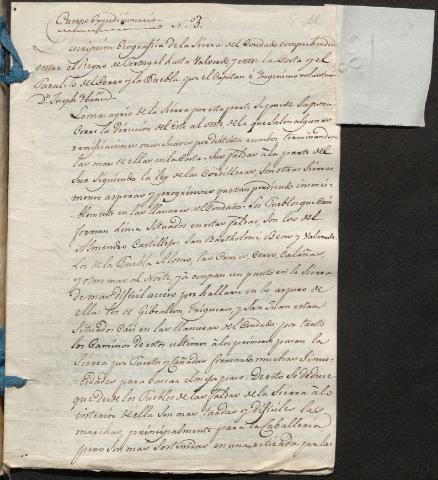 Cuerpo Expedicionario
N.º 3.
Descripcion Geografica de la Sierra del Condado comprendida
entre el Reyno de Portugal hasta Valverde, y entre la Costa y el
Paralelo del Cerro y la Puebla por el Capitan é Ingeniero voluntario
Dn. Joseph Ybañez
Lo mas agrio de la Sierra por esta parte sigue de
corre la direccion del Este al oeste de la que salen algunas
ramificaciones mas suaves por distintos rumbos, terminandose
las mas de ellas en la Costa. Sus faldas á la parte del
Sur siguiendo la ley de las Cordilleras, son otras Sierras
menos asperas y progresivas que van perdiendo
en las llanuras del Condado. Los Pueblos que
forman linea situados en estas faldas, son los del
Almendro, Castillejo, San Bartholomé, Beas y Valverde
Los de la Puebla, Alosno, las Cruces, Cerro, Calañas,
y otros mas al Norte ya ocupan un punto en la Sierra
de mas dificil acceso por hallarse en lo aspero de
ella: los de Gibraleon, Trigueros y San Juan estan
situados casi en las llanuras del Condado: por tanto
los Caminos de estos ultimos á los primeros pasan la
Sierra por Puertos y Cañadas formando muchas sinuo-
sidades para buscar el mejor paso. De esto se deduce
que desde los Pueblos de las faldas de la Sierra á lo
interior de ella son mas tardas y dificiles las
marchas, principalmente para la Caballeria
pero son mas sostenidas en una retirada por las